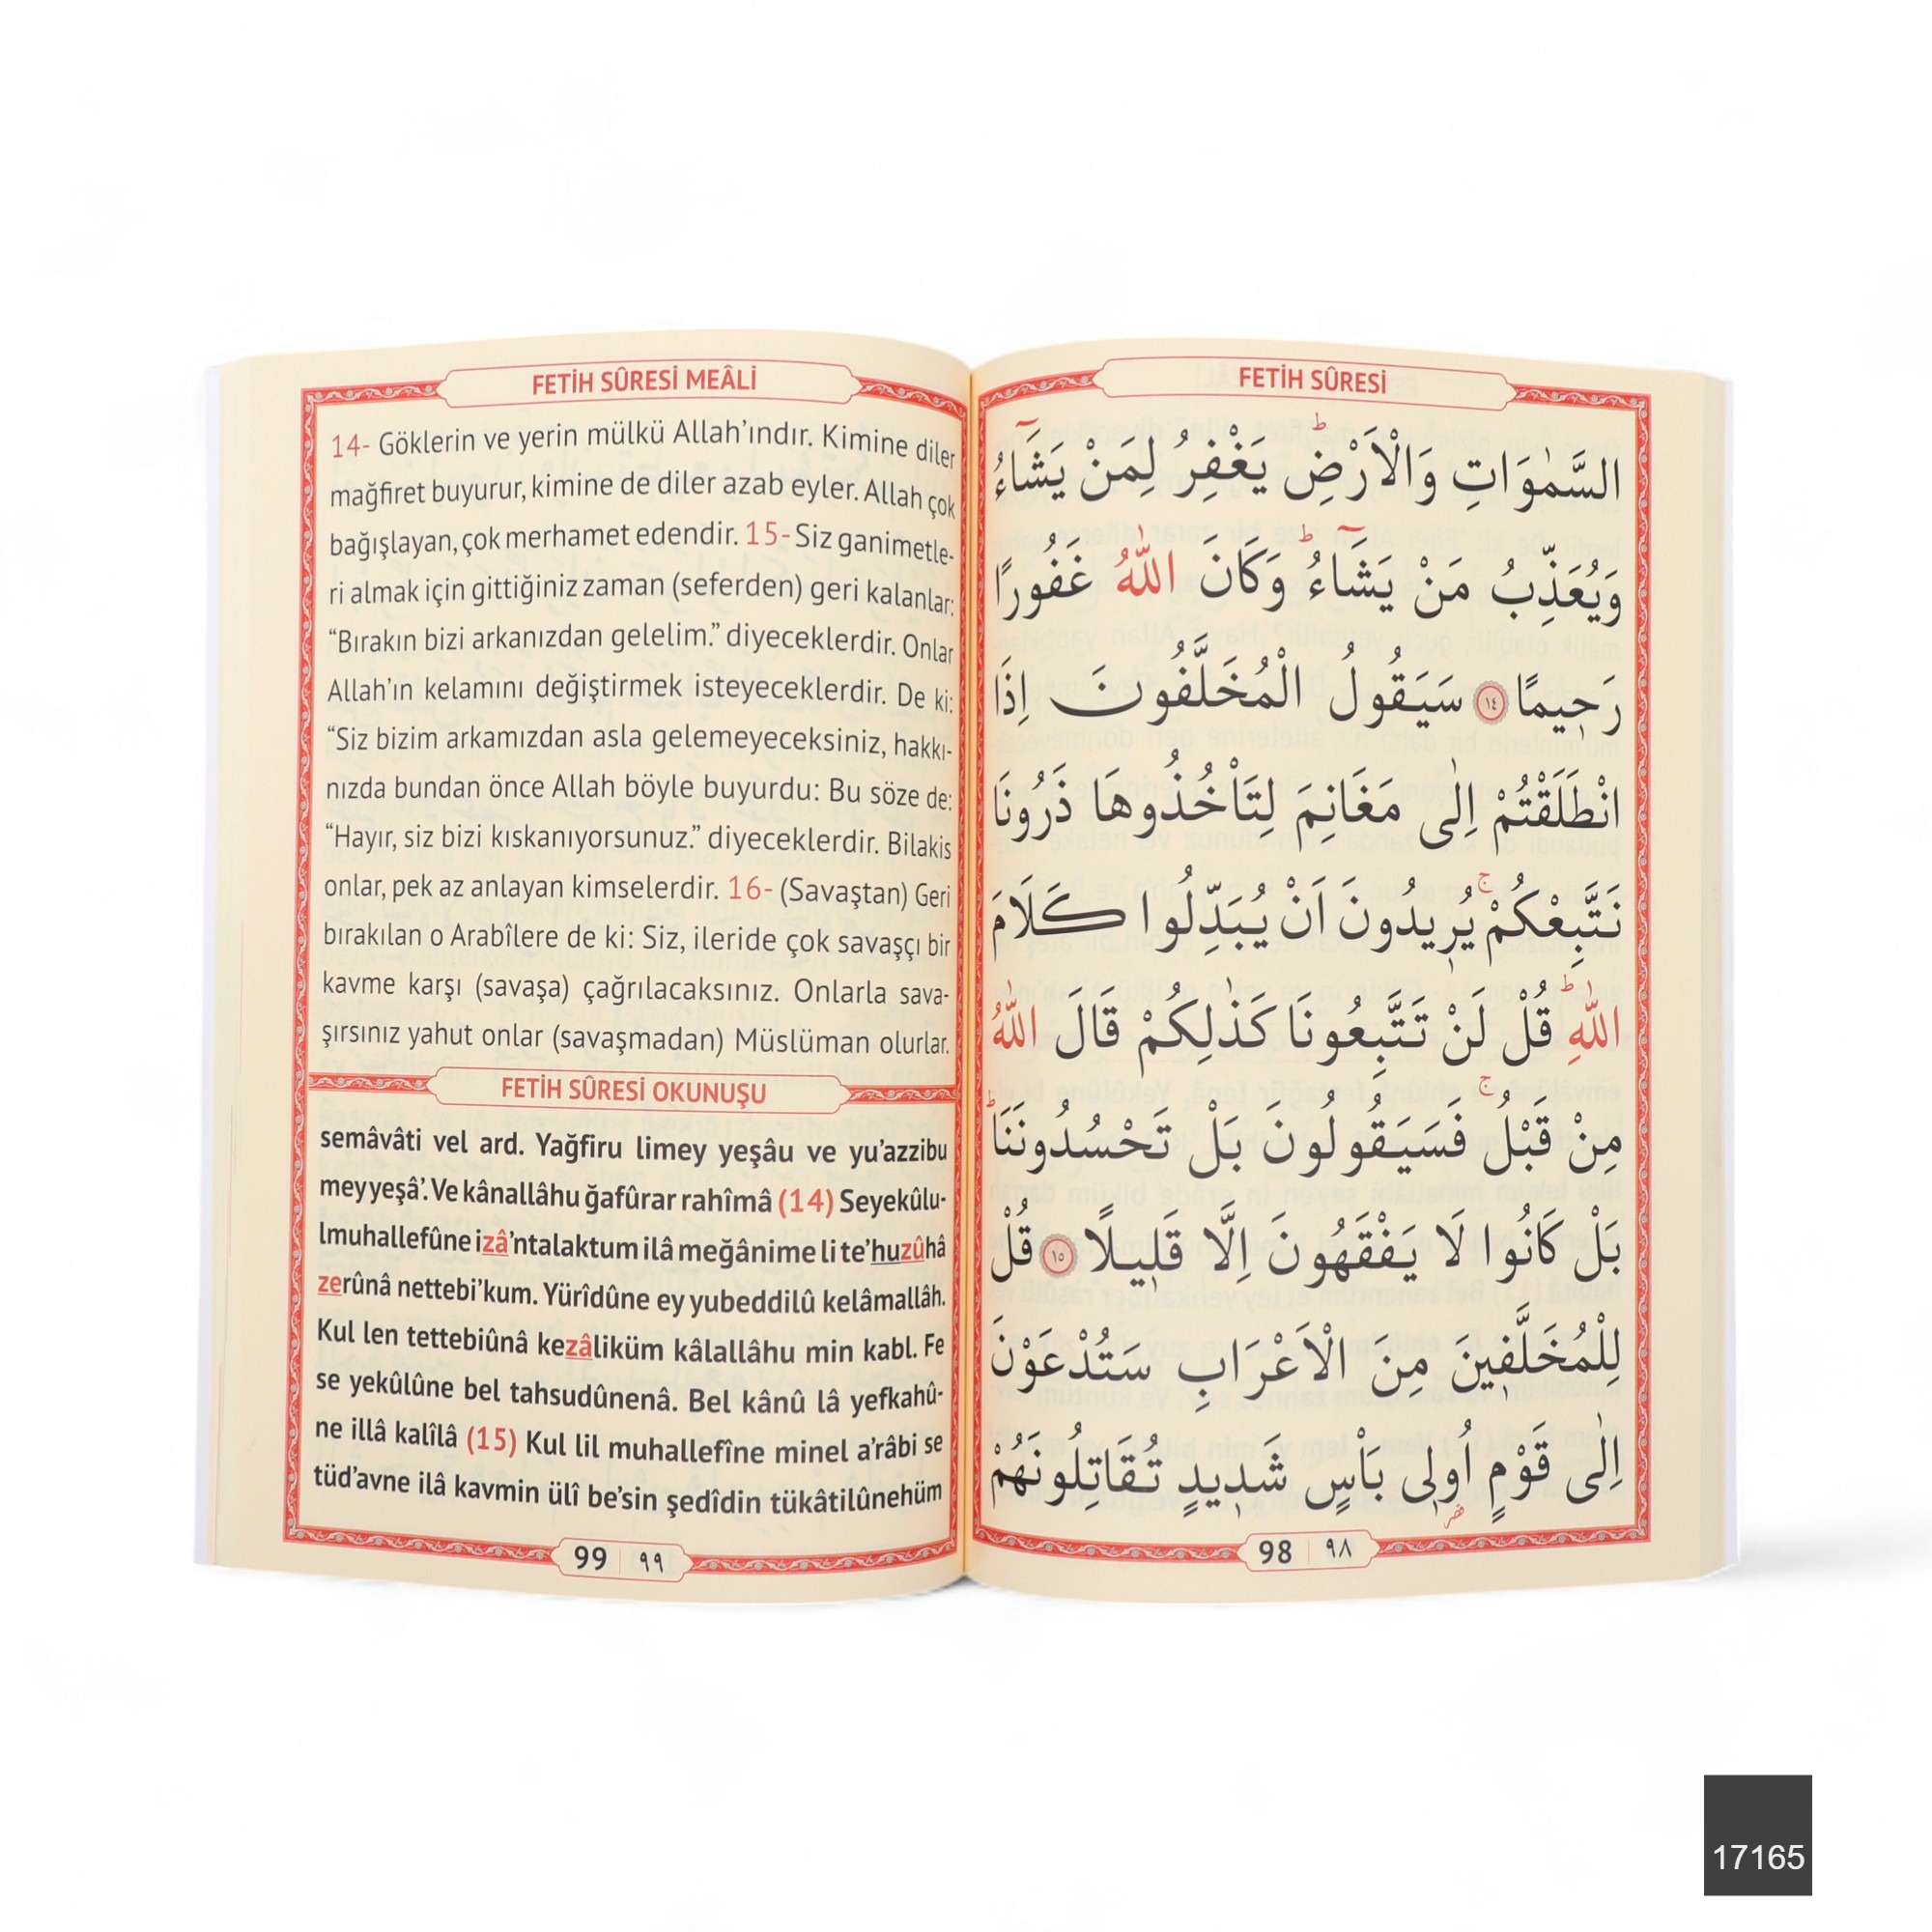 FETİH SÛRESİ
السَّمٰوَاتِ وَالْاَرْضِۜ يَغْفِرُ لِمَنْ يَشَٓاءُ
وَيُعَذِّبُ مَنْ يَشَٓاءُۜ وَكَانَ اللّٰهُ غَفُورًا
رَح۪يمًا ﴿١٤﴾ سَيَقُولُ الْمُخَلَّفُونَ اِذَا
انْطَلَقْتُمْ اِلٰى مَغَانِمَ لِتَاْخُذُوهَا ذَرُونَا
نَتَّبِعْكُمْۚ يُر۪يدُونَ اَنْ يُبَدِّلُوا كَلَامَ
اللّٰهِۜ قُلْ لَنْ تَتَّبِعُونَا كَذٰلِكُمْ قَالَ اللّٰهُ
مِنْ قَبْلُۚ فَسَيَقُولُونَ بَلْ تَحْسُدُونَنَاۜ
بَلْ كَانُوا لَا يَفْقَهُونَ اِلَّا قَل۪يلًا ﴿١٥﴾ قُلْ
لِلْمُخَلَّف۪ينَ مِنَ الْاَعْرَابِ سَتُدْعَوْنَ
اِلٰى قَوْمٍ اُو۬ل۪ي بَاْسٍ شَد۪يدٍ تُقَاتِلُونَهُمْ
98 | ٩٨
FETİH SÛRESİ MEÂLİ
14- Göklerin ve yerin mülkü Allah’ındır. Kimine diler
mağfiret buyurur, kimine de diler azab eyler. Allah çok
bağışlayan, çok merhamet edendir. 15- Siz ganimetle-
ri almak için gittiğiniz zaman (seferden) geri kalanlar:
“Bırakın bizi arkanızdan gelelim.” diyeceklerdir. Onlar
Allah’ın kelamını değiştirmek isteyeceklerdir. De ki:
“Siz bizim arkamızdan asla gelemeyeceksiniz, hakkı-
nızda bundan önce Allah böyle buyurdu: Bu söze de:
“Hayır, siz bizi kıskanıyorsunuz.” diyeceklerdir. Bilakis
onlar, pek az anlayan kimselerdir. 16- (Savaştan) Geri
bırakılan o Arabîlere de ki: Siz, ileride çok savaşçı bir
kavme karşı (savaşa) çağrılacaksınız. Onlarla sava-
şırsınız yahut onlar (savaşmadan) Müslüman olurlar.
FETİH SÛRESİ OKUNUŞU
semâvâti vel ard. Yağfiru limey yeşâu ve yu’azzibu
mey yeşâ’. Ve kânallâhu ğafûrar rahîmâ (14) Seyekûlu-
lmuhallefûne izâ’ntalaktum ilâ meğânime li te’huzûhâ
zerûnâ nettebi’kum. Yürîdûne ey yubeddilû kelâmallâh.
Kul len tettebiûnâ kezâliküm kâlallâhu min kabl. Fe
se yekûlûne bel tahsudûnenâ. Bel kânû lâ yefkahû-
ne illâ kalîlâ (15) Kul lil muhallefîne minel a’râbi se
tüd’avne ilâ kavmin ülî be’sin şedîdin tükâtilûnehüm
99 | ٩٩
17165